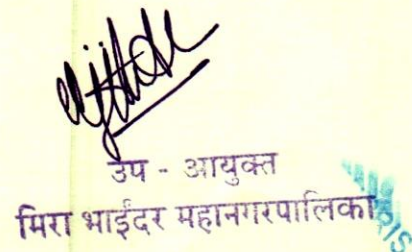 उप - आयुक्त
मिरा भाईंदर महानगरपालिका